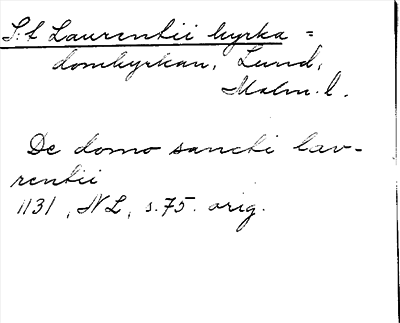 S:t Laurentii kyrka =
domkyrkan, Lund,
Malm. l.
De domo sancti lav-
rentii
1131, NL, s.75. orig.